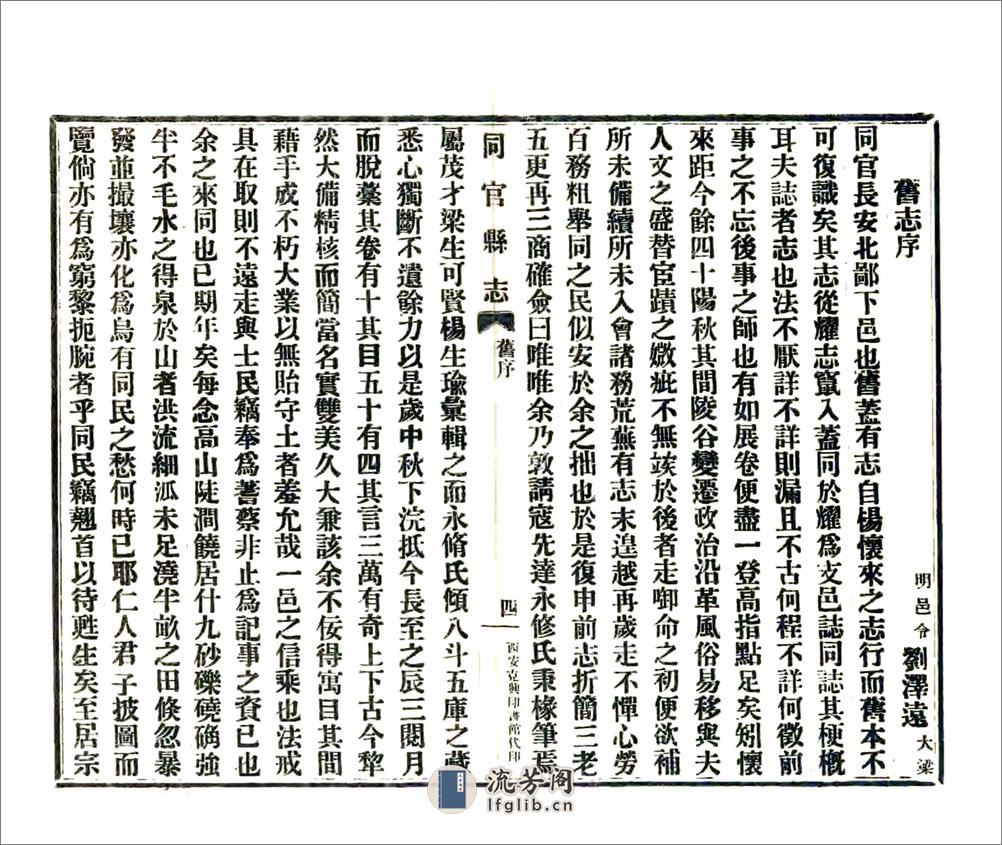 舊志序
明邑令 劉澤遠 大梁
同官長安北鄙下邑也舊蓋有志自楊懷來之志行而舊本不
可復識矣其志從耀志竄入蓋同於耀為支邑誌同誌其梗概
耳夫誌者志也法不厭詳不詳則漏且不古何程不詳何徵前
事之不忘後事之師也有如展卷便盡一登高指點足矣矧懷
來距今餘四十陽秋其間陵谷變遷政治沿革風俗易移與夫
人文之盛替宦蹟之媺疵不無竢於後者走啣命之初便欲補
所未備續所未入會諸務荒蕪有志末遑越再歲走不憚心勞
百務粗舉同之民似安於余之拙也於是復申前志折簡三老
五更再三商確僉曰唯唯余乃敦請寇先達永修氏秉椽筆焉
同官縣志 舊序 四 西安克興印書館代印
屬茂才梁生可賢楊生瑜彙輯之而永脩氏傾八斗五庫之藏
悉心獨斷不遺餘力以是歲中秋下浣抵今長至之辰三閱月
而脫藁其卷有十其目五十有四其言三萬有奇上下古今犂
然大備精核而簡當名實雙美久大兼該余不佞得寓目其間
藉手成不朽大業以無貽守土者羞允哉一邑之信乘也法戒
具在取則不遠走與士民竊奉為蓍蔡非止為記事之資已也
余之來同也已期年矣每念高山陡澗饒居什九砂礫磽确強
半不毛水之得泉於山者洪流細泒未足澆半畝之田倏忽暴
發並撮壤亦化為烏有同民之愁何時已耶仁人君子披圖而
覽倘亦有為窮黎扼腕者乎同民竊翹首以待甦生矣至居宗
流芳阁
lfglib.cn